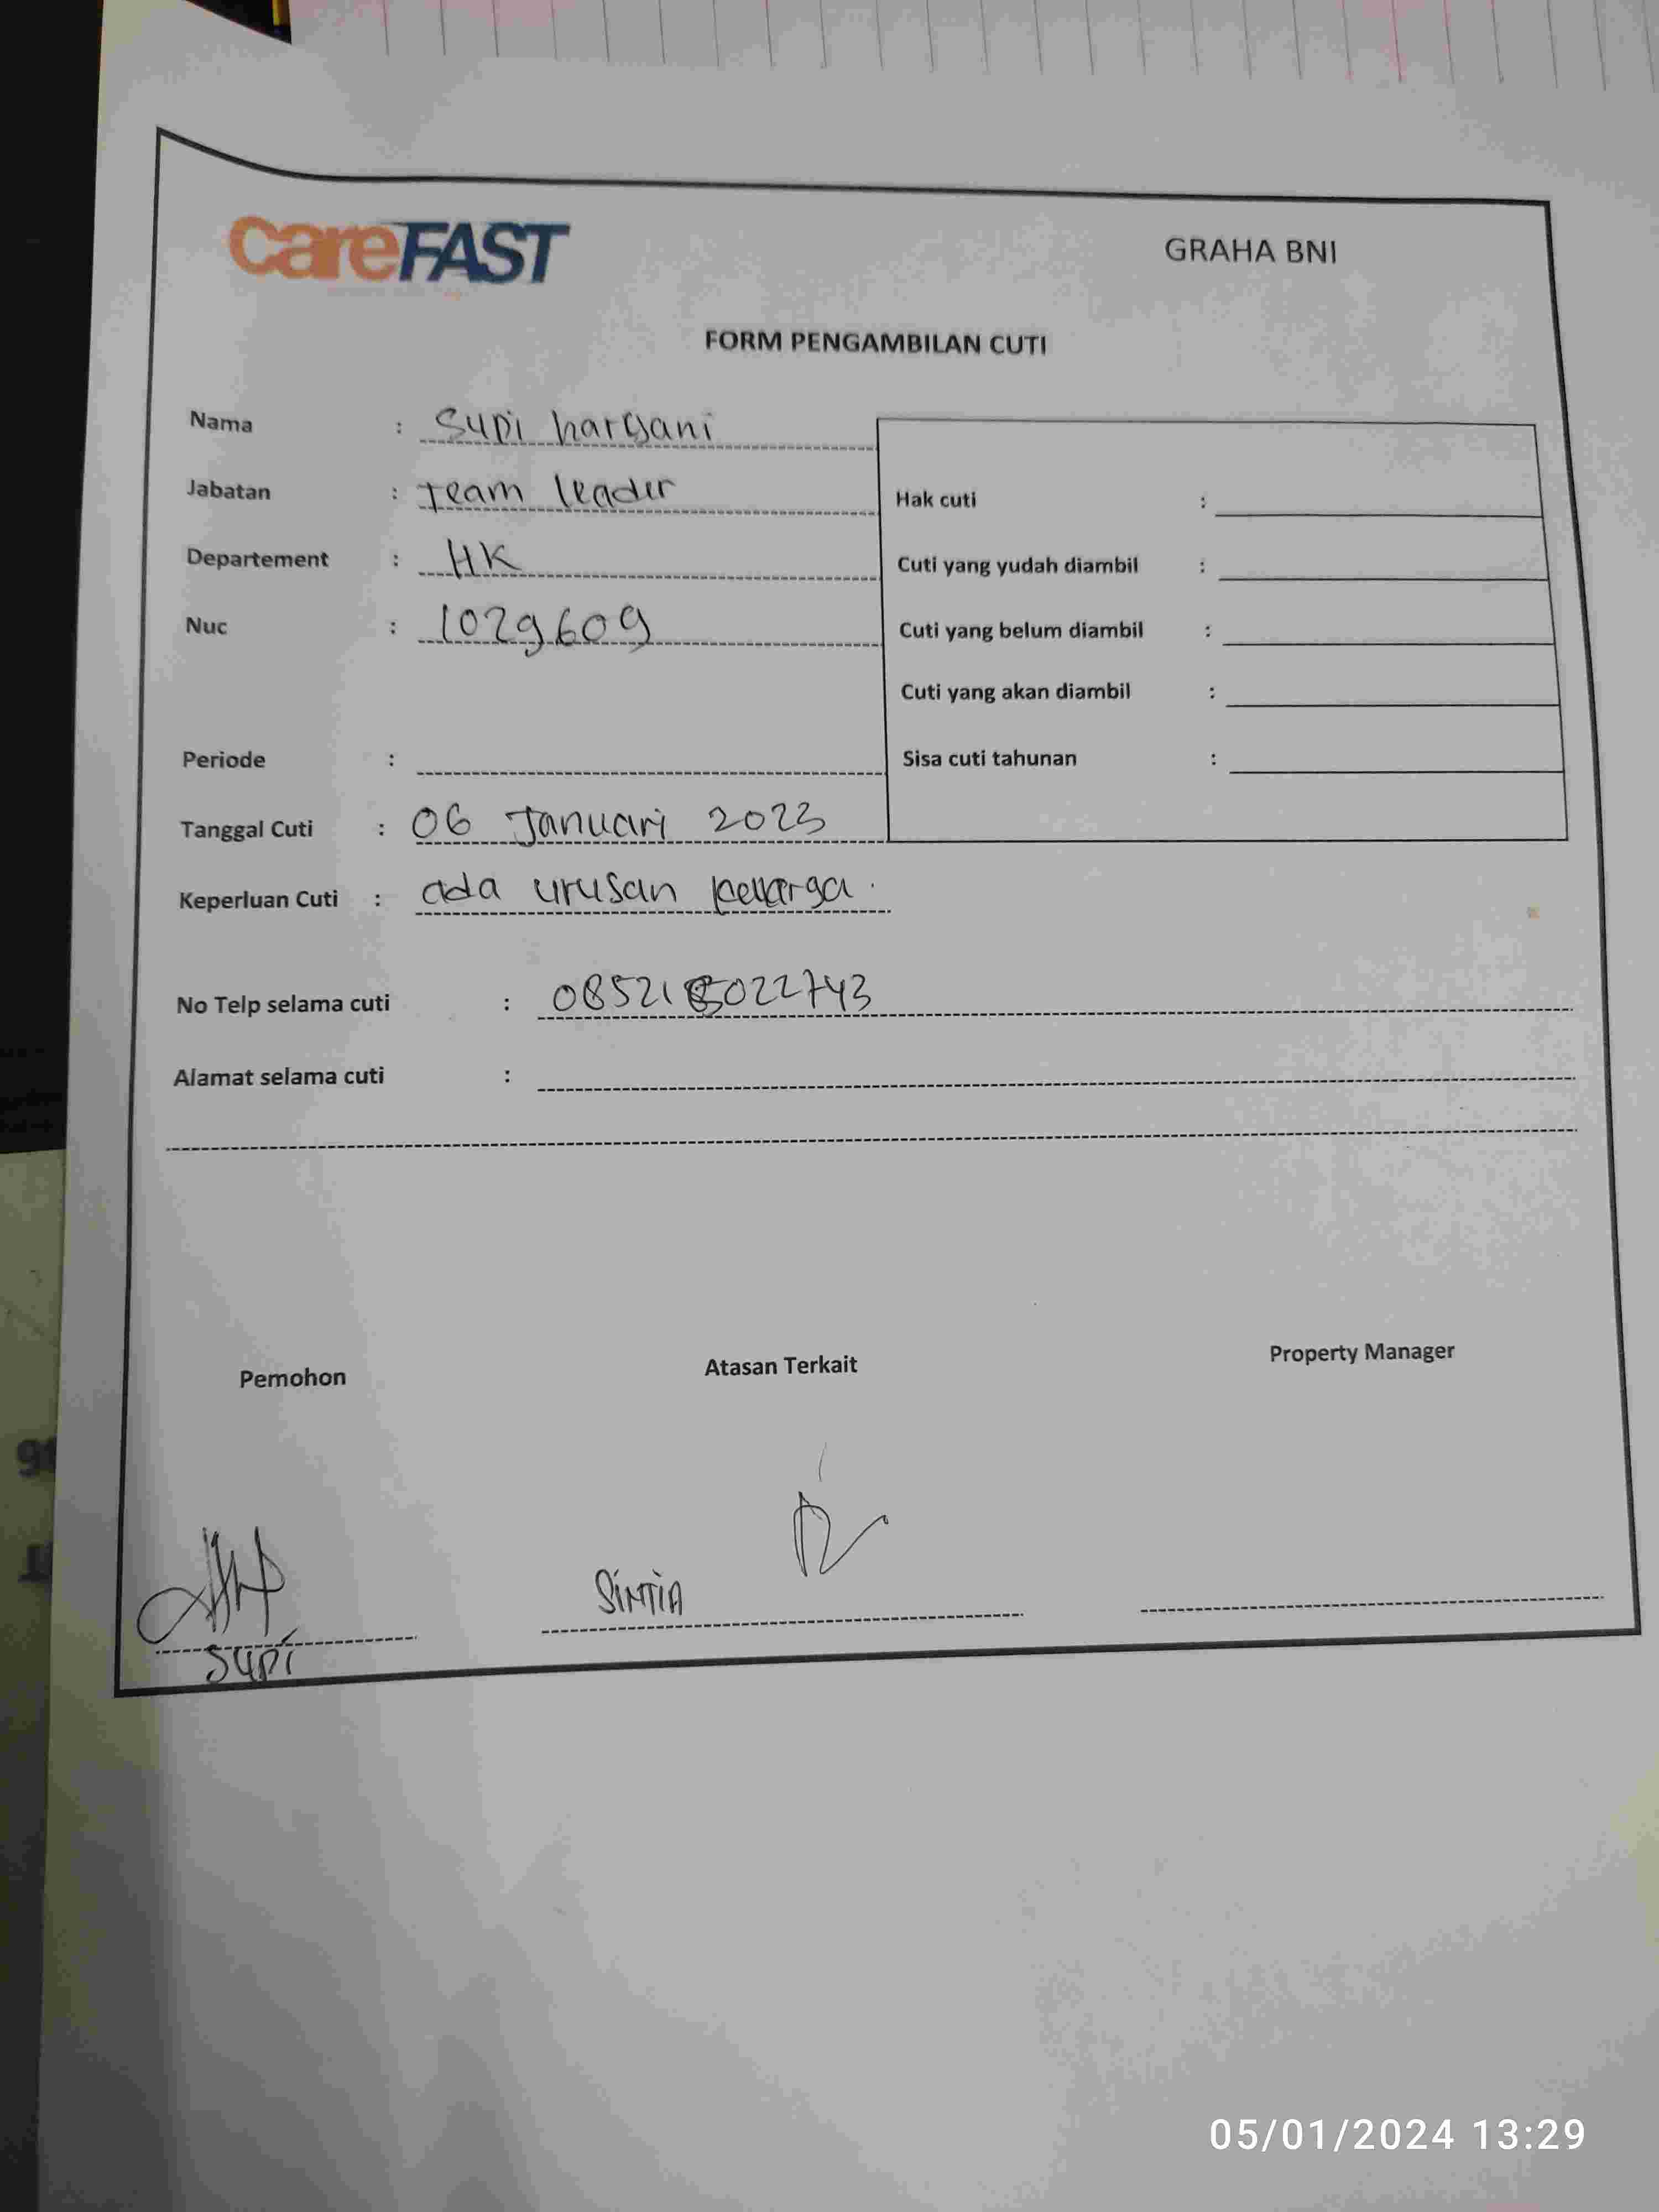 careFAST
GRAHA BNI
FORM PENGAMBILAN CUTI
Nama : Supi haryani
Jabatan : team leader
Departement : HK
Nuc : 1029609
Hak cuti :
Cuti yang yudah diambil :
Cuti yang belum diambil :
Cuti yang akan diambil :
Sisa cuti tahunan :
Periode :
Tanggal Cuti : 06 Januari 2023
Keperluan Cuti : ada urusan keluarga.
No Telp selama cuti :
Alamat selama cuti :
Pemohon
Atasan Terkait
Property Manager
SiNTiA
Supi
05/01/2024 13:29